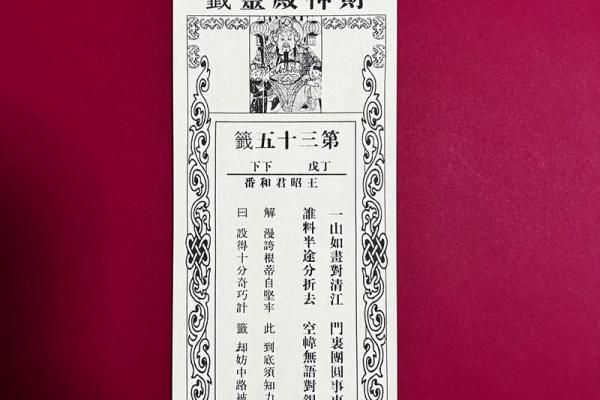 財神殿靈籤
第三十五籤
丁戊 下下
王昭君和番
一山如畫對清江 門裏團圓事
誰料半途分折去 空幃無語對
解 漫誇根蒂自堅牢 此 到底須知力
曰 設得十分奇巧計 籤 却妨中路被